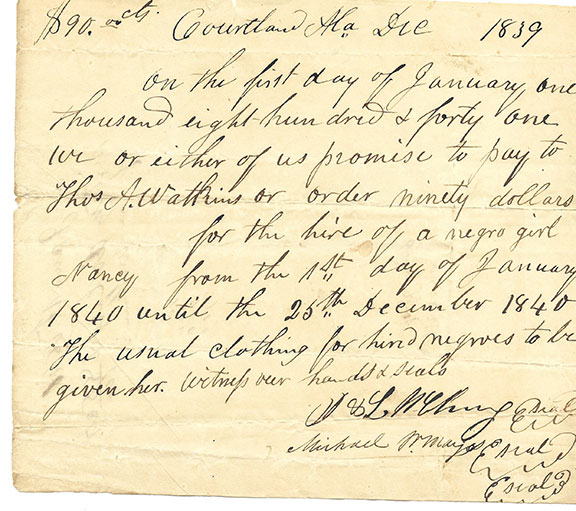 $90. 00 cts Courtland Ala Dec 1839
On the first day of January one
thousand eight hundred & forty one
we or either of us promise to pay to
Thos A. Watkins or order ninety dollars
for the hire of a negro girl
Nancy from the 1st day of January
1840 until the 25th December 1840
The usual clothing for hired negroes to be
given her. Witness our hands & seals
J & L McClung Seal
Michael Seal
Seal